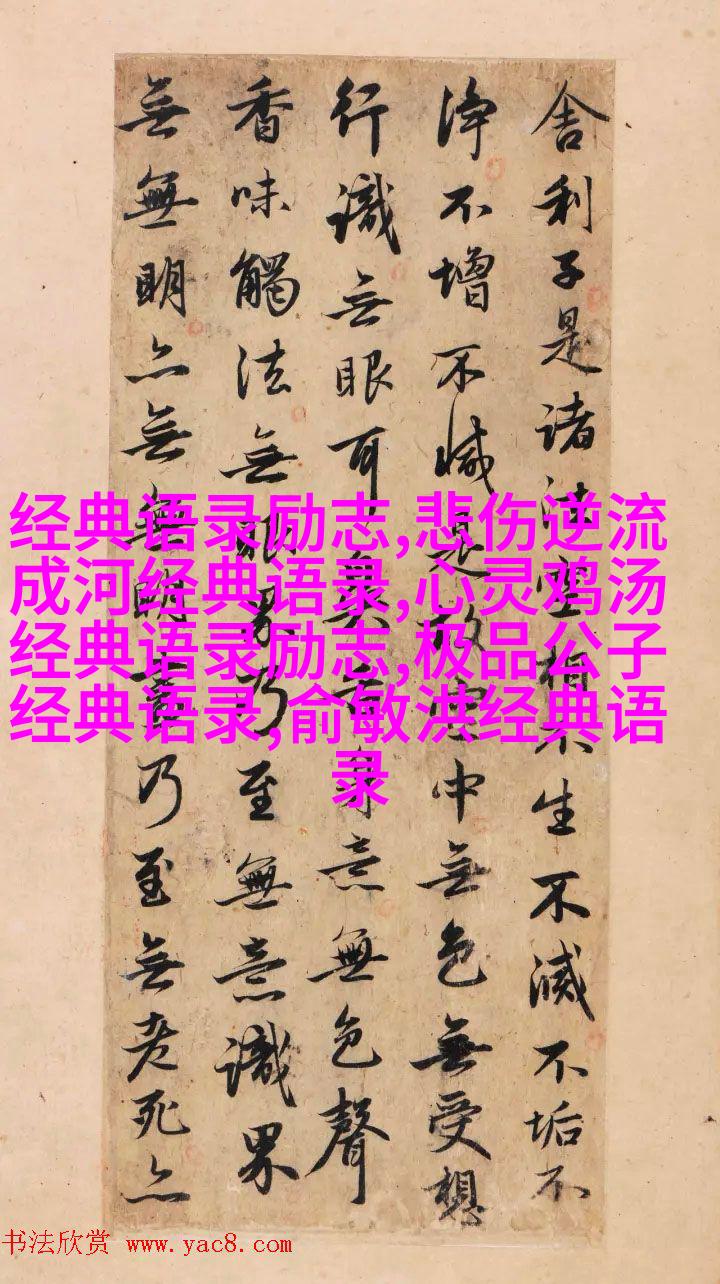 舍利子是諸法空相不生不滅不垢不
淨不增不減是故空中無色無受想
行識无眼耳鼻舌身意無色聲
香味觸法無眼界乃至無意識界
無無明亦無無明盡乃至無老死亦
经典语录励志,悲伤逆流
成河经典语录,心灵鸡汤
经典语录励志,极品公子
经典语录,俞敏洪经典语
录
书法欣赏 www.yac8.com